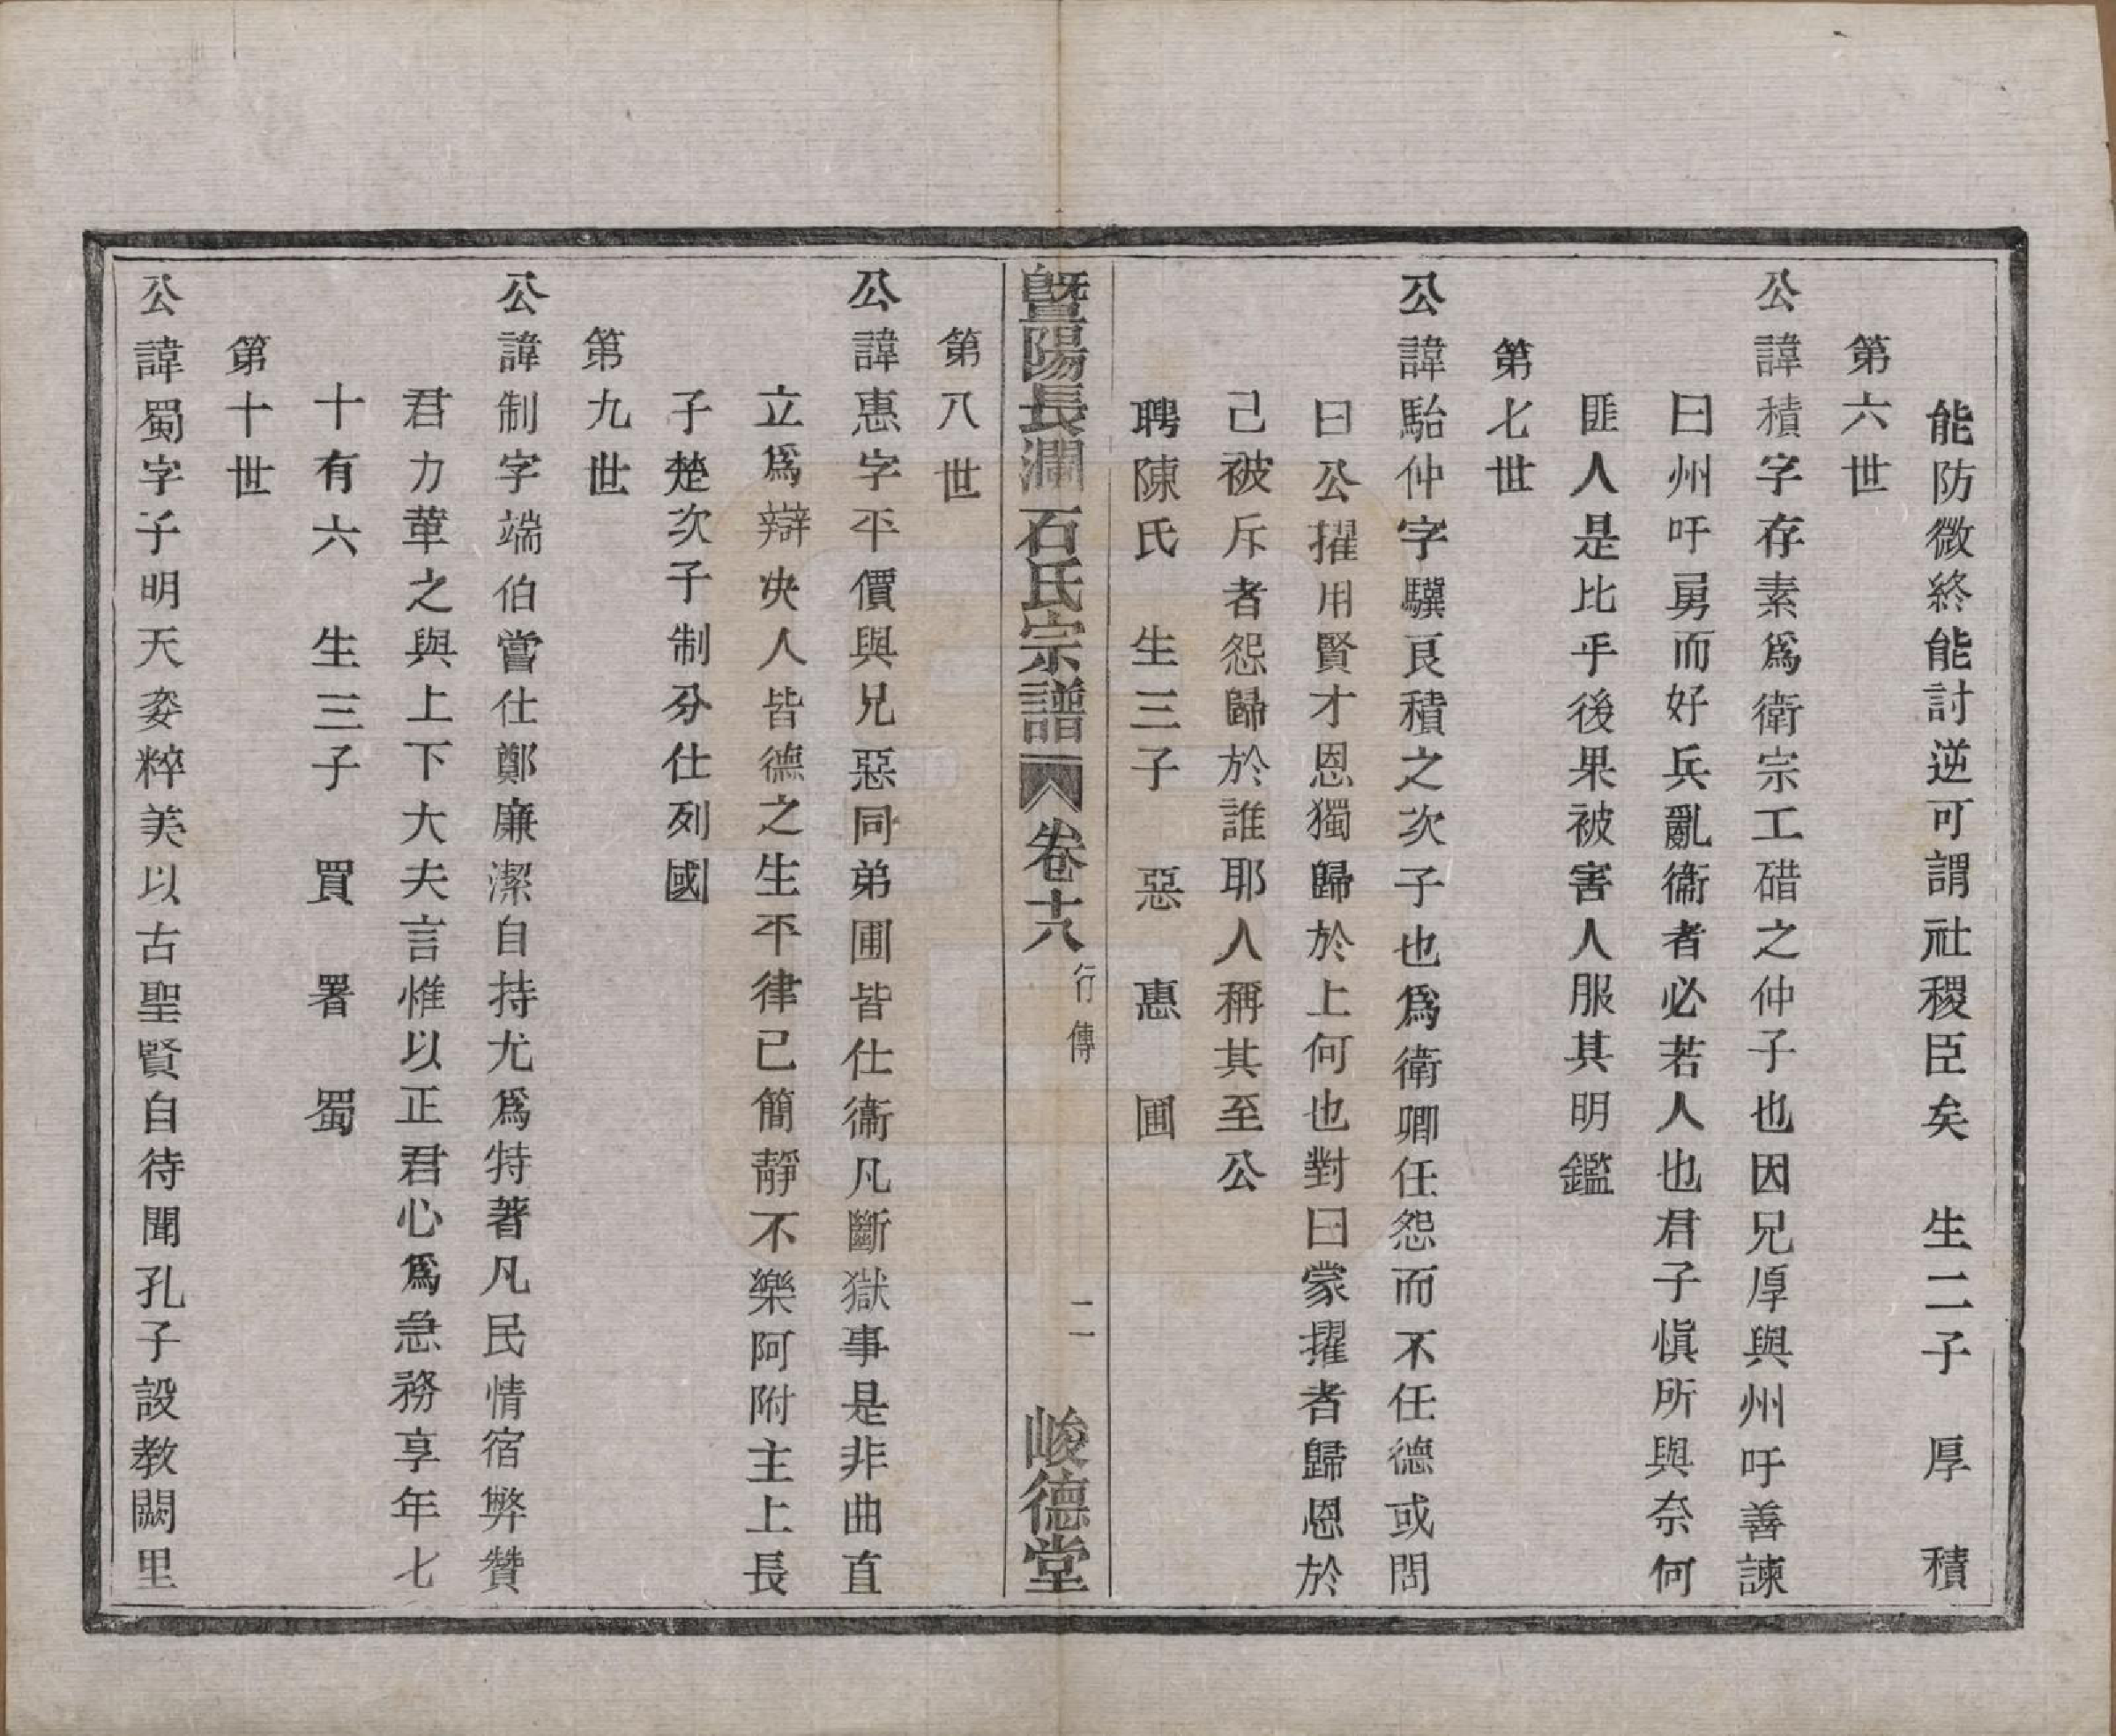 能防微終能討逆可謂社稷臣矣　生二子　厚　積
第六世
公諱積字存素爲衛宗工碏之仲子也因兄厚與州吁善諫
曰州吁勇而好兵亂衞者必若人也君子慎所與奈何
匪人是比乎後果被害人服其明鑑
第七世
公諱駘仲字驥良積之次子也爲衛卿任怨而不任德或問
曰公擢用賢才恩獨歸於上何也對曰蒙擢者歸恩於
己被斥者怨歸於誰耶人稱其至公
聘陳氏　生三子　惡　惠　圃
暨陽長瀾石氏宗譜　卷十八　行傳　二　峻德堂
第八世
公諱惠字平價與兄惡同弟圃皆仕衞凡斷獄事是非曲直
立爲辯決人皆德之生平律已簡靜不樂阿附主上長
子楚次子制分仕列國
第九世
公諱制字端伯嘗仕鄭廉潔自持尤爲特著凡民情宿弊贊
君力革之與上下大夫言惟以正君心爲急務享年七
十有六　生三子　買　署　蜀
第十世
公諱蜀字子明天姿粹美以古聖賢自待聞孔子設教闕里